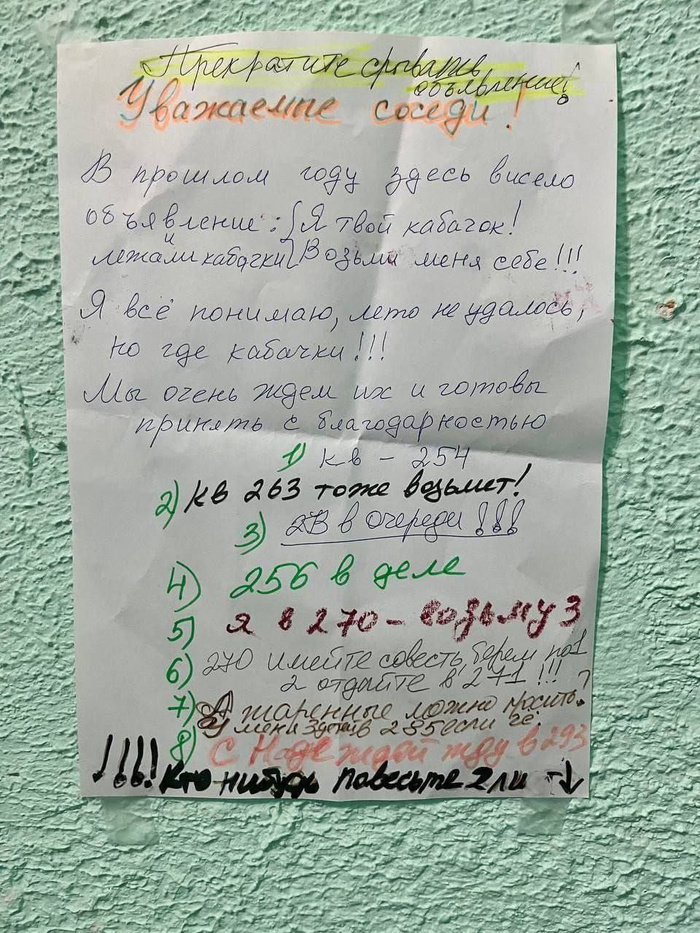 Прекратите срывать
объявление!
Уважаемые соседи!
В прошлом году здесь висело
объявление: Я твой кабачок!
и лежали кабачки Возьми меня себе!!!
Я всё понимаю, лето не удалось,
но где кабачки!!!
Мы очень ждем их и готовы
принять с благодарностью
1) кв - 254
2) кв 263 тоже возьмет!
3) 2В в очереди!!!
4) 256 в деле
5) я в 270 - возьму 3
6) 270 имейте совесть, берем по 1
2 отдайте в 271!!!
7) А жаренные можно носить?
У меня в 285 если чё.
8) С Надеждой жду в 293
!!!! Кто нибудь повесьте 2 ли